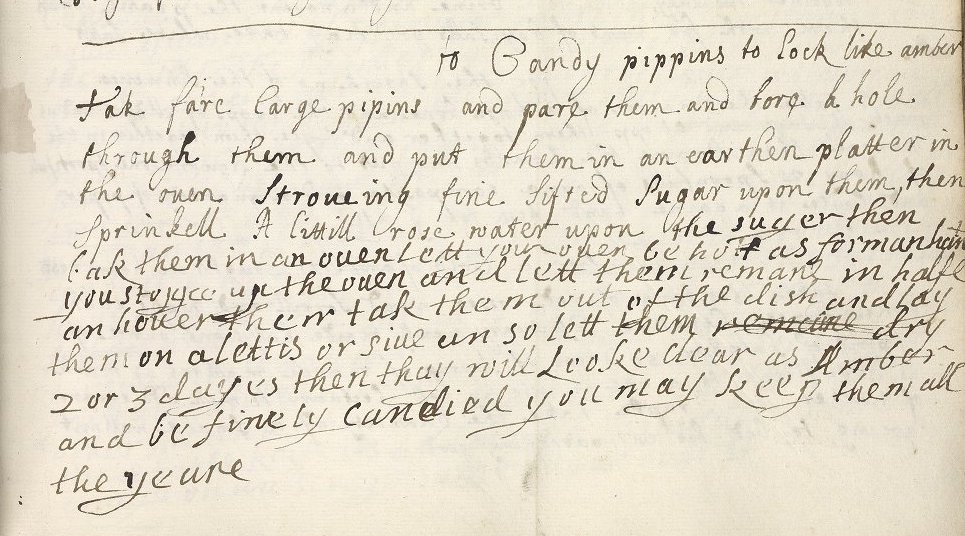 to Candy pippins to lock like amber
Tak faire large pipins and pare them and bore a hole
through them and put them in an earthen platter in
the oven stroueing fine sifted Sugar upon them, then
sprinkell A littill rose water upon the suger then
bak them in an oven Lett your oven be hot as for manchatt
you stopge up the oven and lett them remane in halfe
an hower then tak them out of the dish and lay
them on a lettis or siue an so lett them remaine dry
2 or 3 dayes then thay will Looke clear as Amber
and be finely candied you may keep them all
the yeare